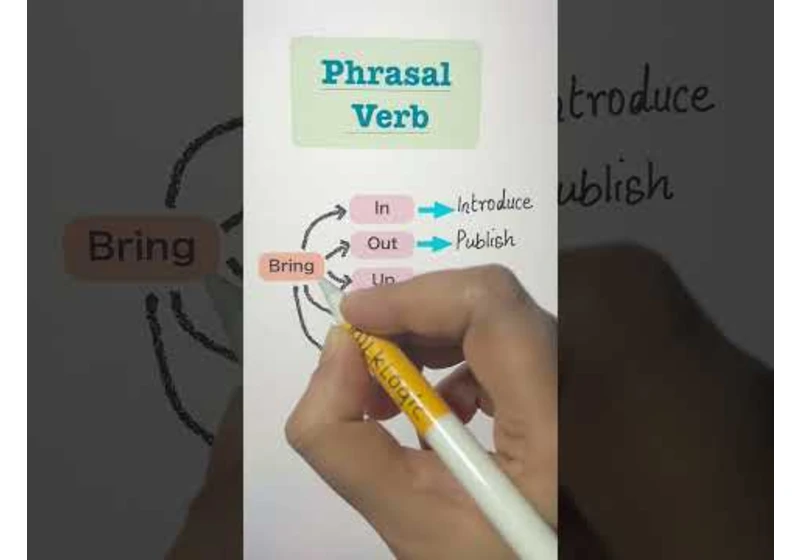 Phrasal
Verb
In
Introduce
Out
Publish
Bring
Up
Bring
ntroduce
ublish